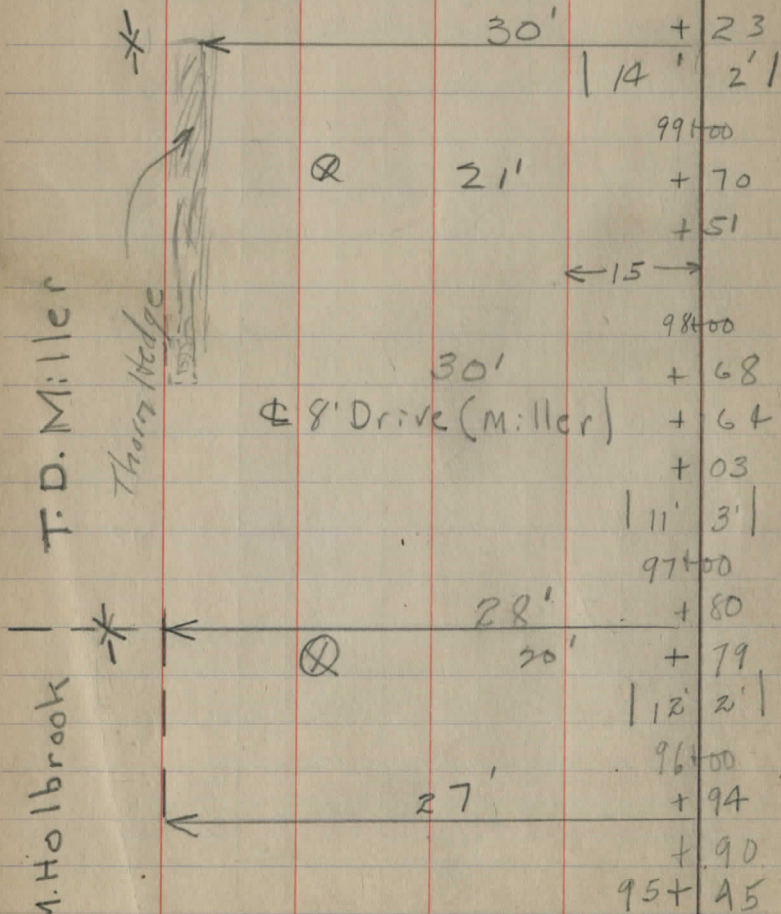 30' + 23
| 14' 2' |
99+00
21' + 70
+ 51
15
98+00
30' + 68
℄ 8' Drive (Miller) + 64
+ 03
| 11' 3' |
97+00
28' + 80
20' + 79
| 12' 2' |
96+00
27' + 94
+ 90
95+ 45
T.D. Miller
Thorn Hedge
M. Holbrook